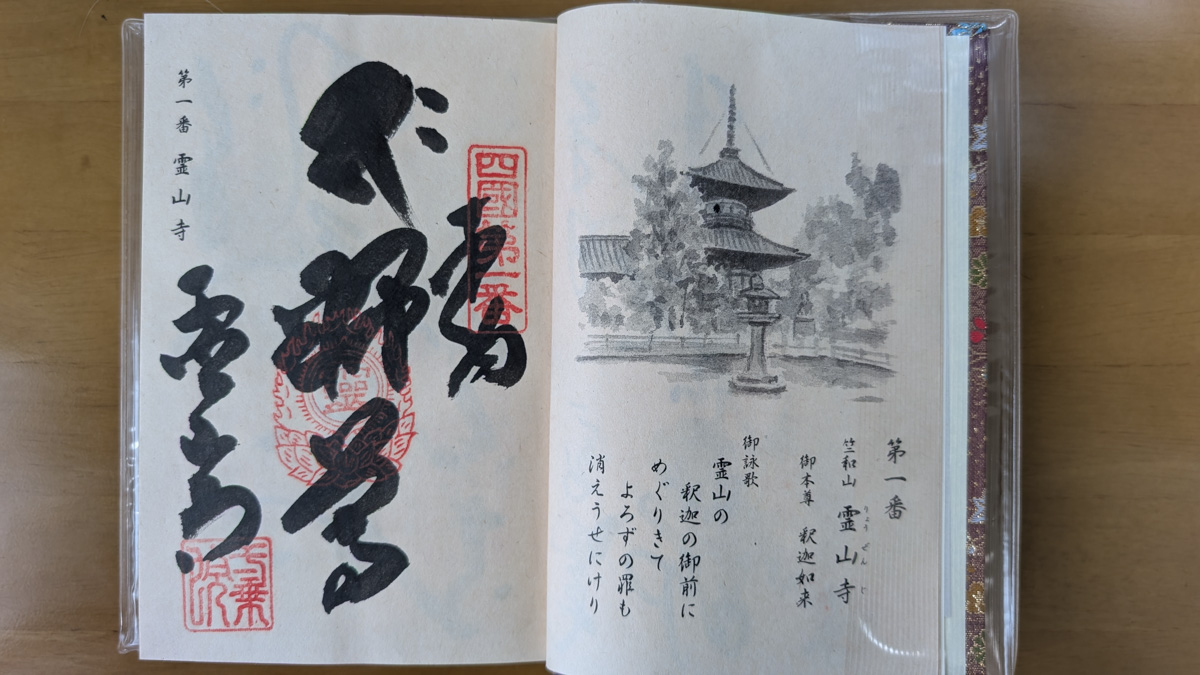 第一番
りょうぜんじ
竺和山 霊山寺
御本尊 釈迦如来
御詠歌
霊山の
釈迦の御前に
めぐりきて
よろずの罪も
消えうせにけり
四國第一番
釋尊
霊山寺
第一番 霊山寺